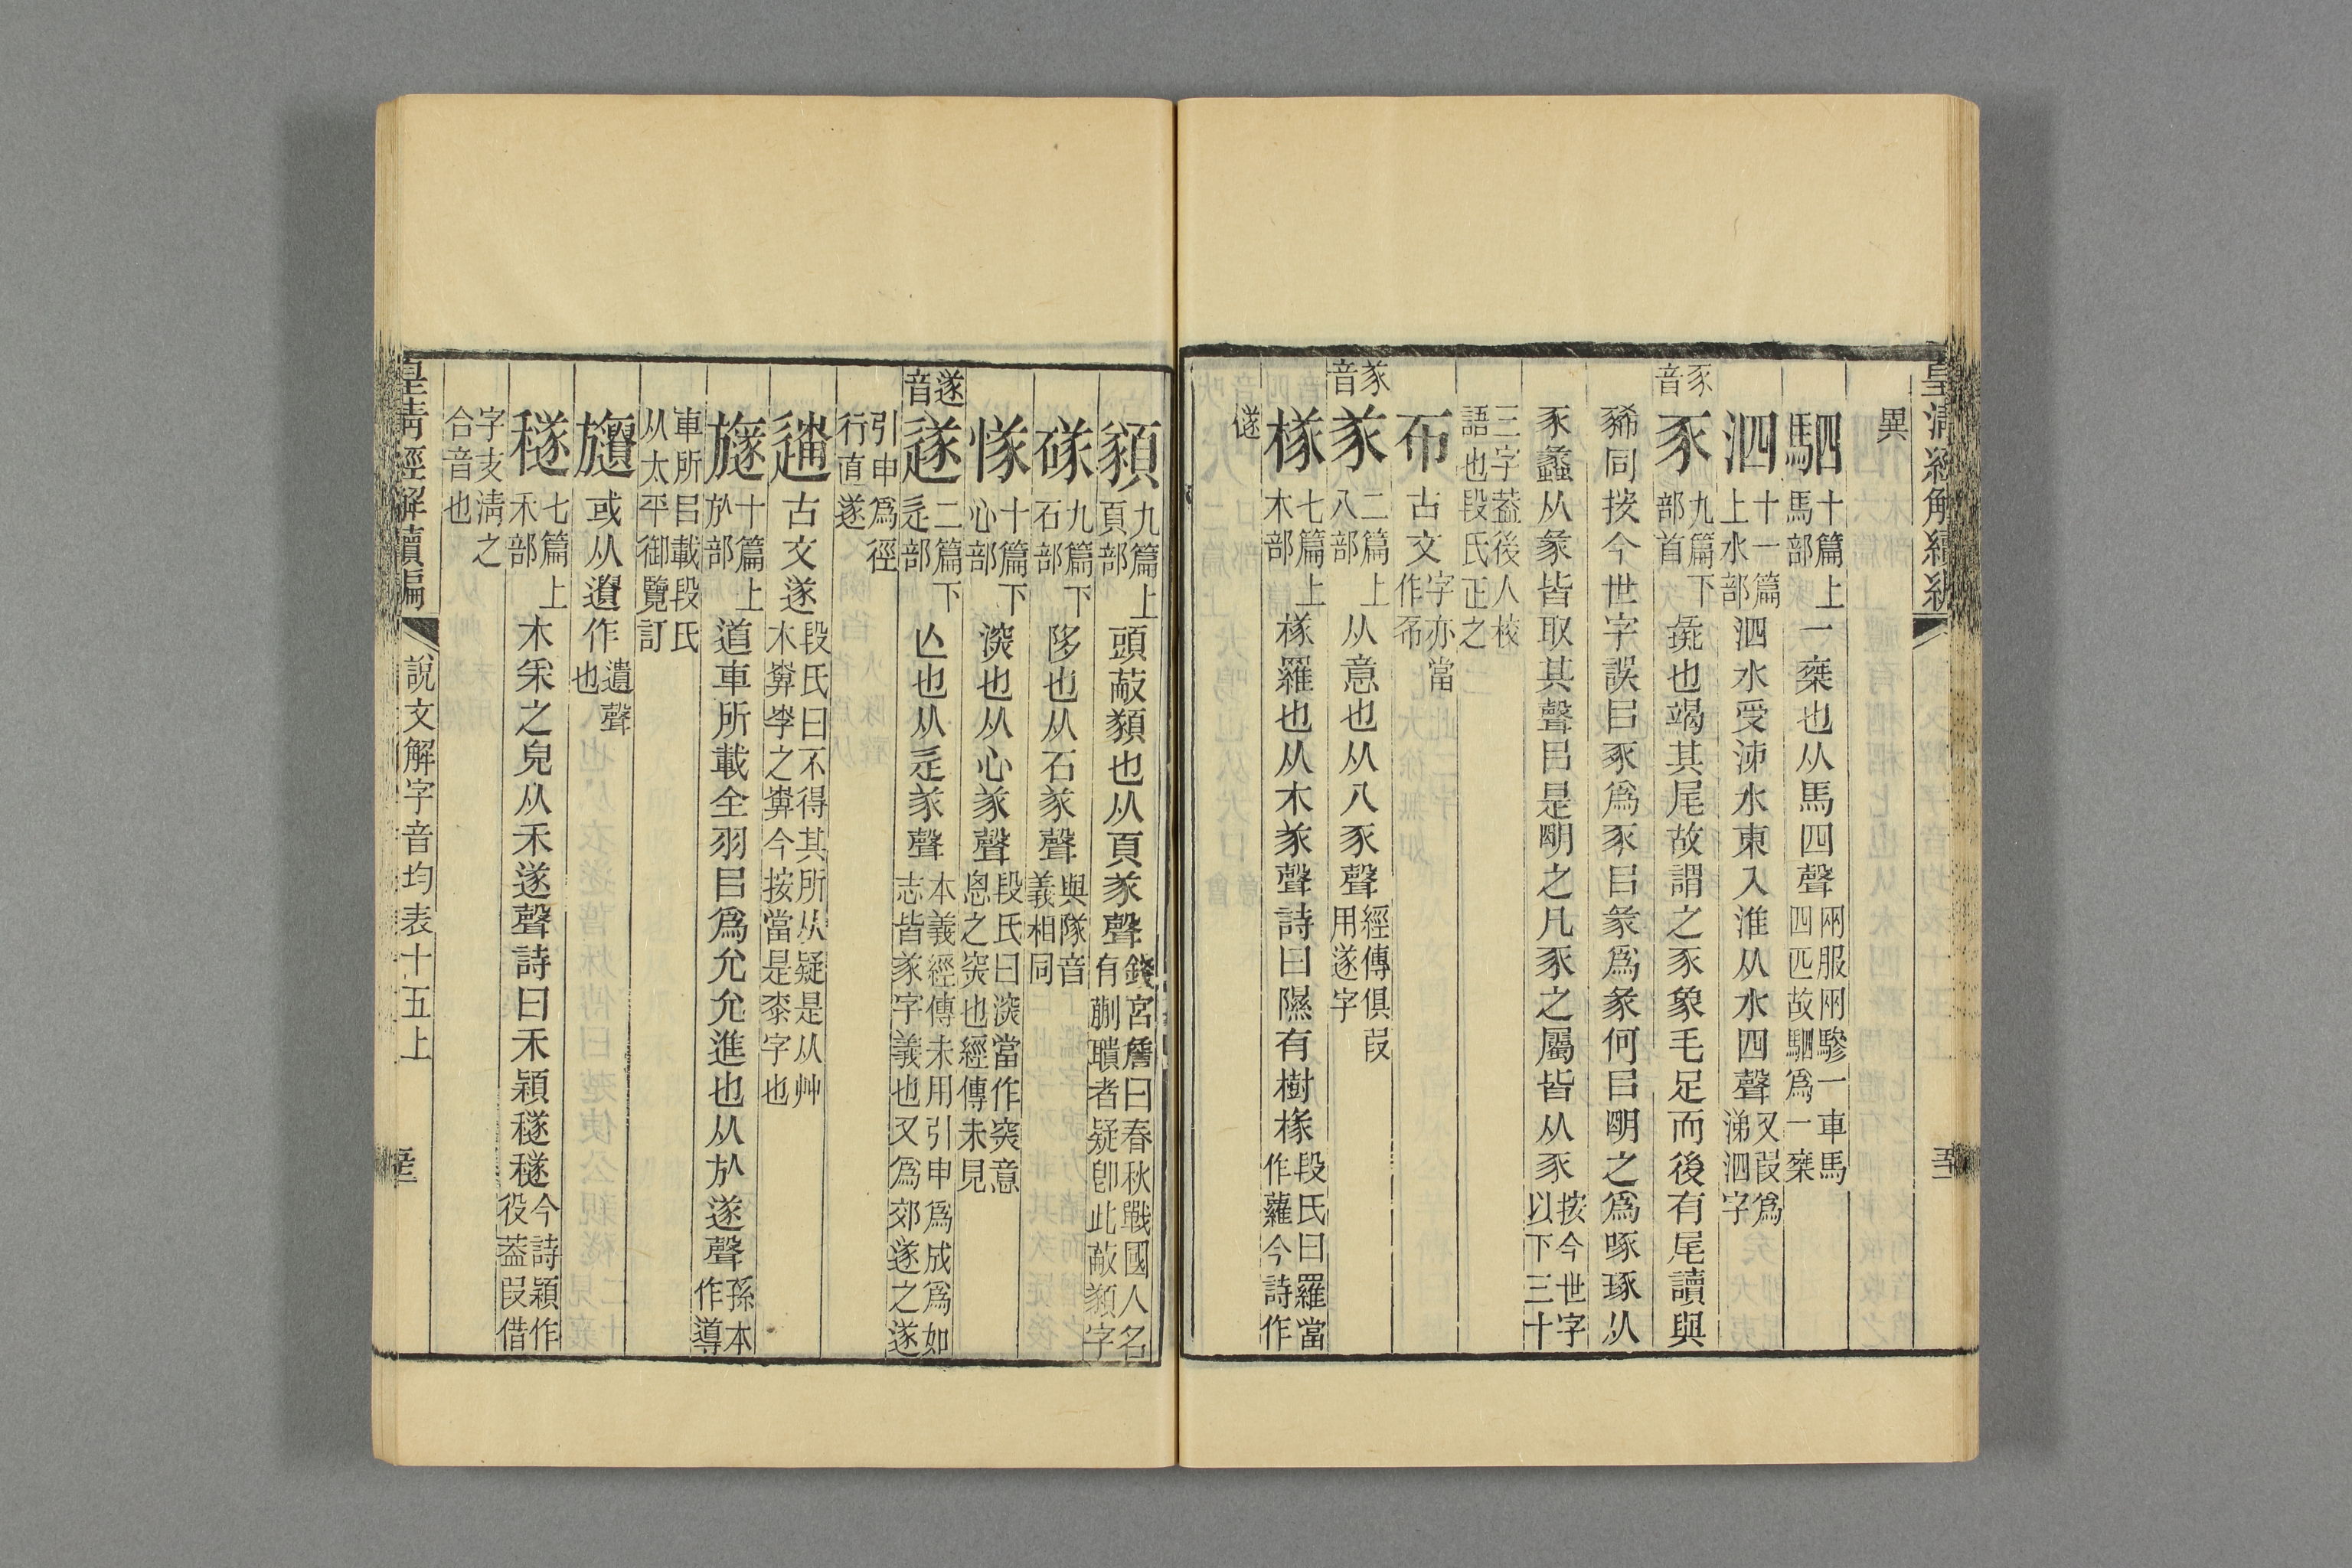 皇清經解續編
異
駟十篇上馬部一椉也从馬四聲兩服兩驂一車馬四匹故駟爲一椉
泗十一篇上水部泗水受泲水東入淮从水四聲又叚爲涕泗字
豕音豕九篇下部首彘也竭其尾故謂之豕象毛足而後有尾讀與
豨同按今世字誤㠯豕爲豕㠯彖爲彖何㠯朙之爲啄琢从
豕蠡从彖皆取其聲㠯是朙之凡豕之屬皆从豕按今世字以下三十
三字葢後人校語也段氏正之
古文字亦當作
㒸音㒸二篇上八部从意也从八豕聲經傳俱叚用遂字
檖七篇上木部檖羅也从木㒸聲詩曰隰有樹檖段氏曰羅當作蘿今詩作
䔹
九篇上頁部頭蔽䫥也从頁㒸聲錢宮詹曰春秋戰國人名有蒯聵者疑卽此蔽䫥字
䃍九篇下石部陊也从石㒸聲與隊音義相同
㒸十篇下心部深也从心㒸聲段氏曰深當作突意悤之突也經傳未見
遂音遂二篇下辵部亾也从辵㒸聲本義經傳未用引申爲成爲如志皆㒸字義也又爲郊遂之遂
引申爲徑行直遂
古文遂段氏曰不得其所从疑是从艸木㔾孛之今按當是桼字也
旞十篇上㫃部道車所載全羽㠯爲允允進也从㫃遂聲孫本作導
車所㠯載段氏从太平御覽訂
旞或从遺作遺聲也
穟七篇上禾部禾采之皃从禾遂聲詩曰禾穎穟穟今詩穎作役葢叚借
字支淸之合音也
皇清經解續編
說文解字音均表十五上